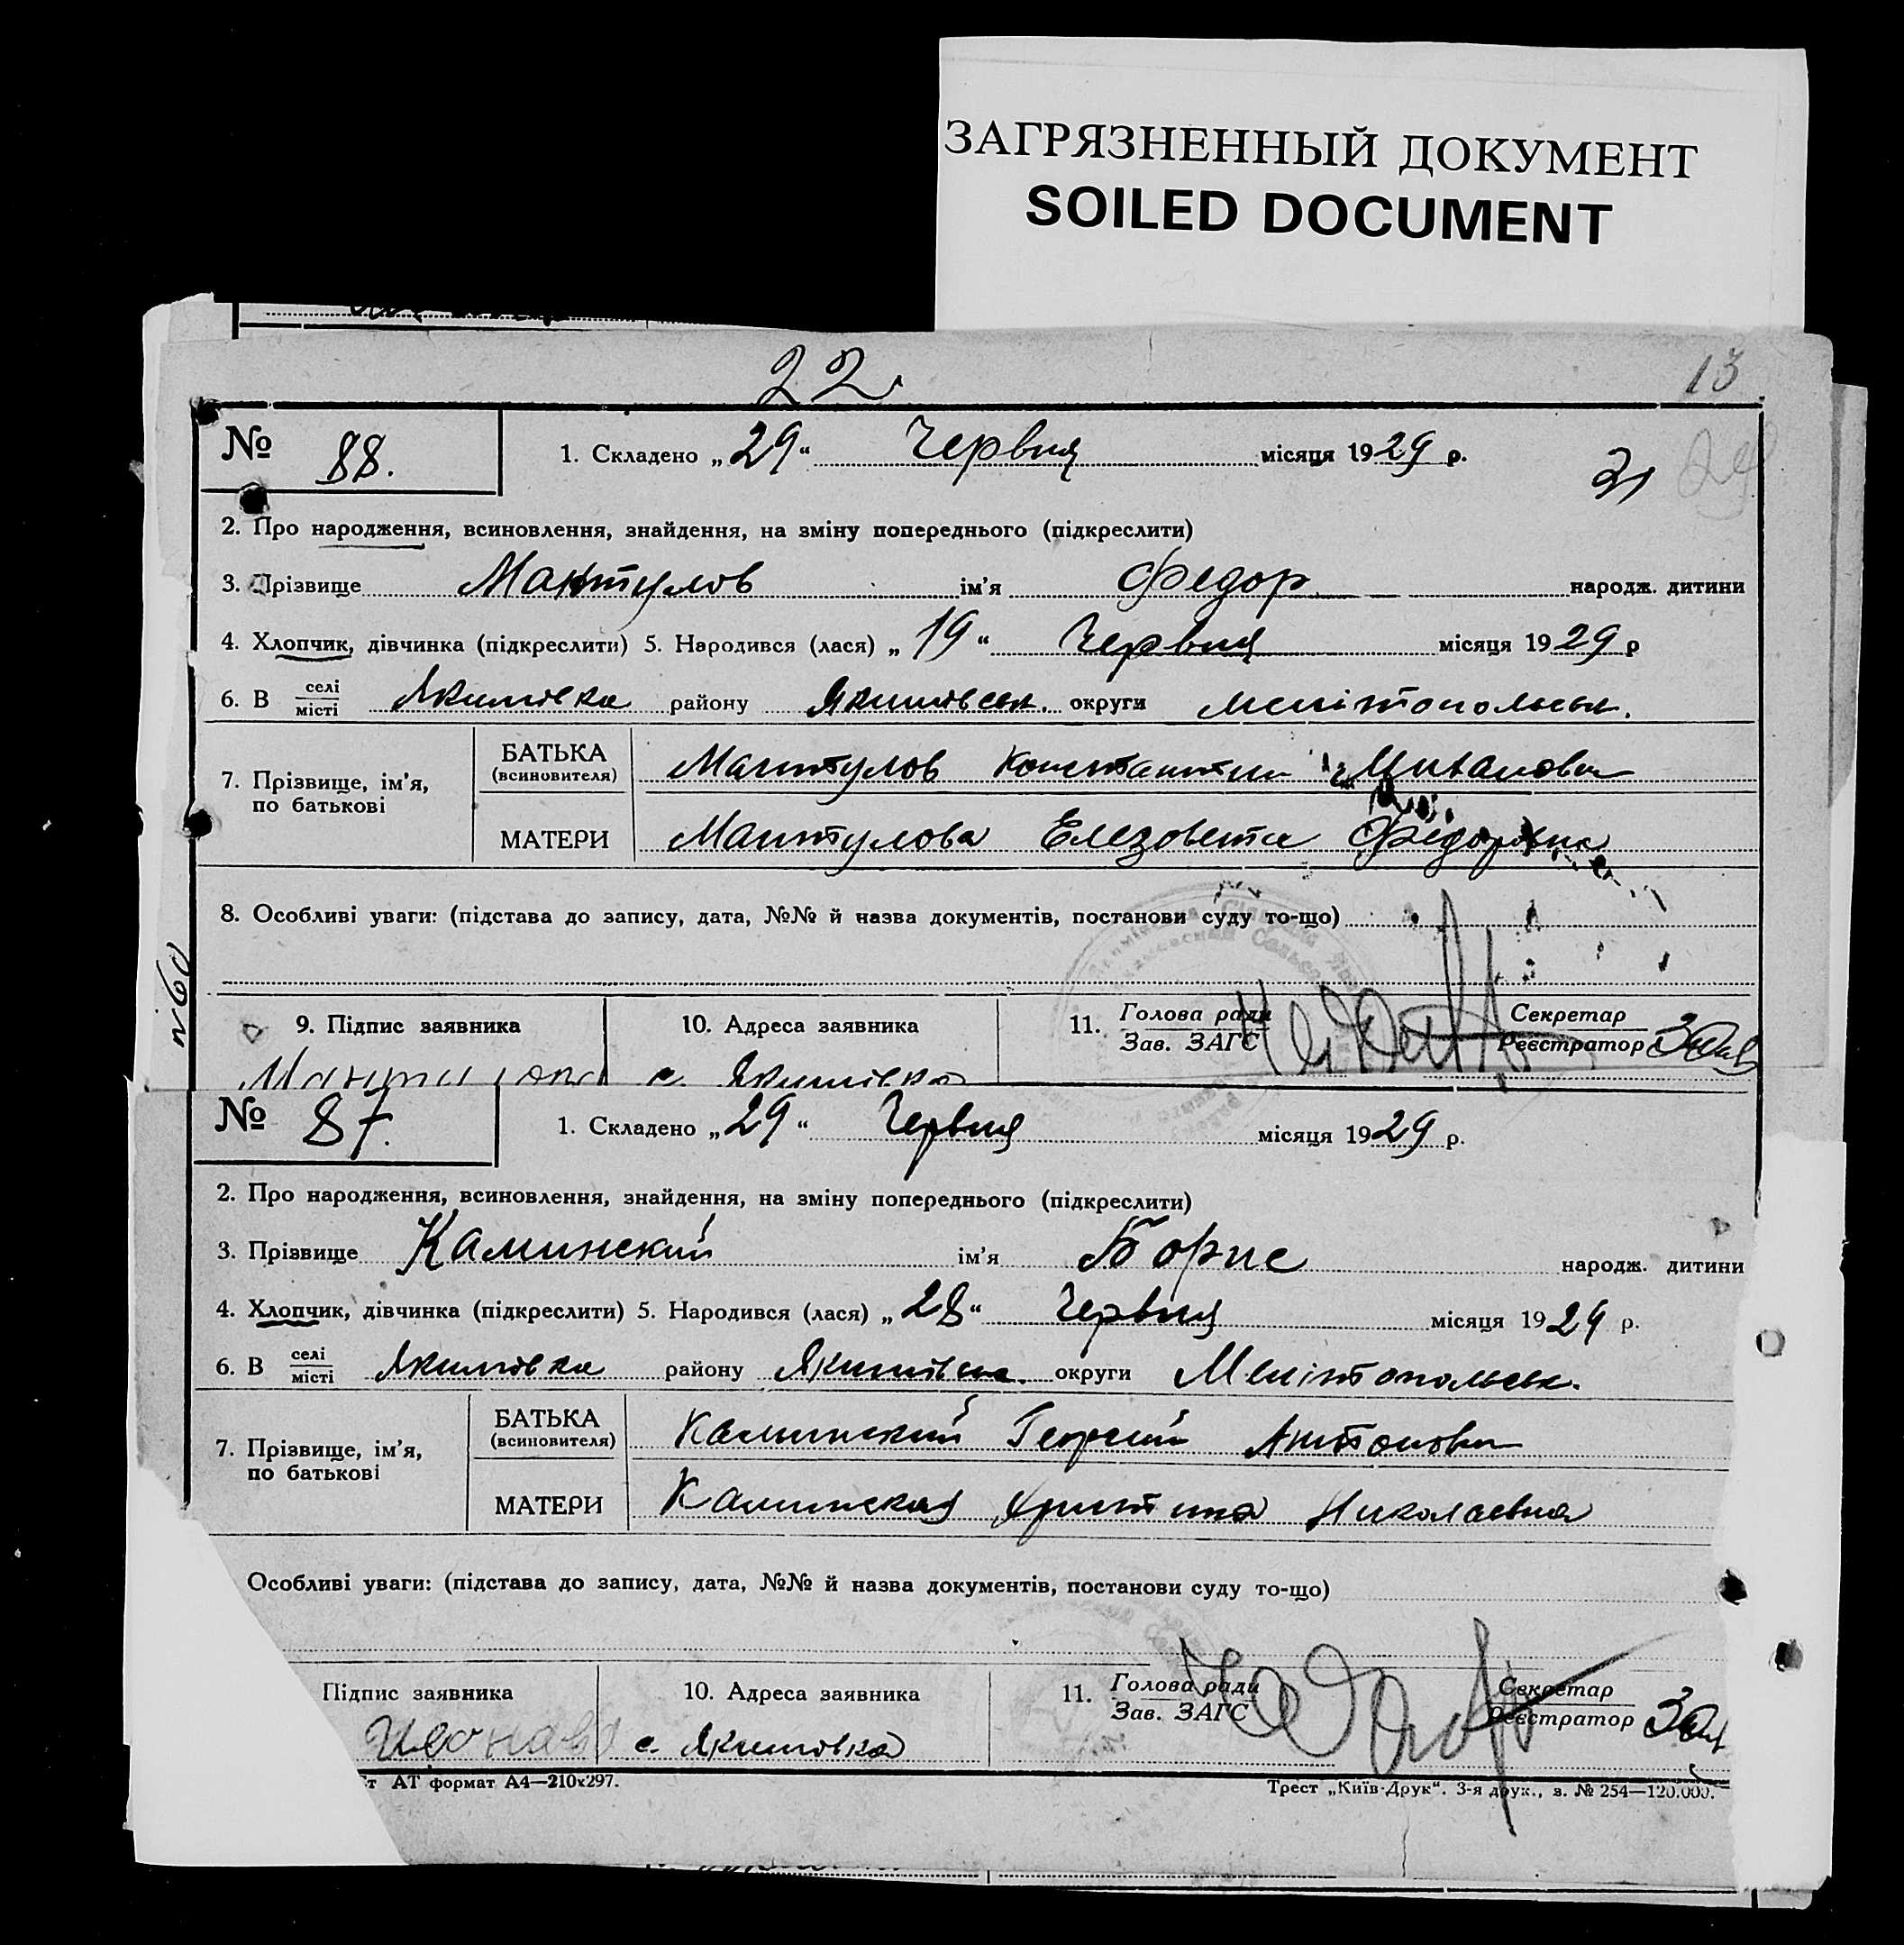 ЗАГРЯЗНЕННЫЙ ДОКУМЕНТ
SOILED DOCUMENT
22
13
№ 88.
1. Складено „29“ Червня місяця 1929 р.
31
29
2. Про народження, всиновлення, знайдення, на зміну попереднього (підкреслити)
3. Прізвище Мантулов ім’я Федор народж. дитини
4. Хлопчик, дівчинка (підкреслити) 5. Народився (лася) „19“ Червня місяця 1929 р
6. В селі/місті Якимівка району Якимівськ. округи Мелітопольськ.
7. Прізвище, ім’я, по батькові
БАТЬКА (всиновителя) Мантулов Константин
МАТЕРИ Мантулова Елезовета Федоровна
8. Особливі уваги: (підстава до запису, дата, №№ й назва документів, постанови суду то-що)
9. Підпис заявника
10. Адреса заявника
11. Голова ради Зав. ЗАГС
Секретар Реєстратор
Мантулова с. Якимівка
№ 87.
1. Складено „29“ Червня місяця 1929 р.
2. Про народження, всиновлення, знайдення, на зміну попереднього (підкреслити)
3. Прізвище Каминский ім’я Борис народж. дитини
4. Хлопчик, дівчинка (підкреслити) 5. Народився (лася) „28“ Червня місяця 1929 р.
6. В селі/місті Якимівка району Якимівськ. округи Мелітопольськ.
7. Прізвище, ім’я, по батькові
БАТЬКА (всиновителя) Каминский Георгий Антонович
МАТЕРИ Каминская Христина Николаевна
Особливі уваги: (підстава до запису, дата, №№ й назва документів, постанови суду то-що)
Підпис заявника
10. Адреса заявника
11. Голова ради Зав. ЗАГС
Секретар Реєстратор
с. Якимовка
АТ формат А4—210х297.
Трест „Київ-Друк“. 3-я друк., з. № 254—120.000.